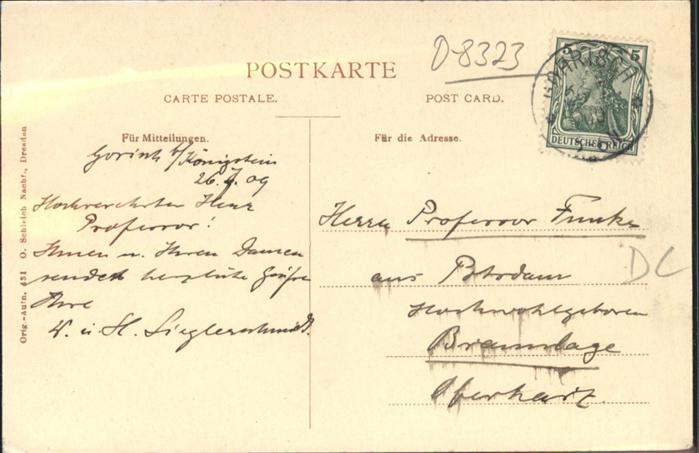 D-8323
POSTKARTE
CARTE POSTALE.
POST CARD.
5 5
GOHRISCH
DEUTSCHES REICH
Für Mitteilungen.
Für die Adresse.
Gorisch b/Königstein
26.7.09
Hochverehrter Herr
Professor!
Ihnen u. Ihren Damen
sendet herzliche Grüsse
Ihre
W. u. H. Sieglerschmidt.
Herrn Professor Funke
aus Potsdam
Hochwohlgeboren
Braunlage
Oberharz.
DC
Orig.-Aufn. 451 O. Schleich Nachf., Dresden